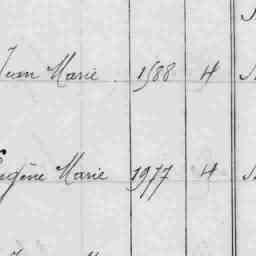 Jean Marie 1588 4
Eugène Marie 1977 4